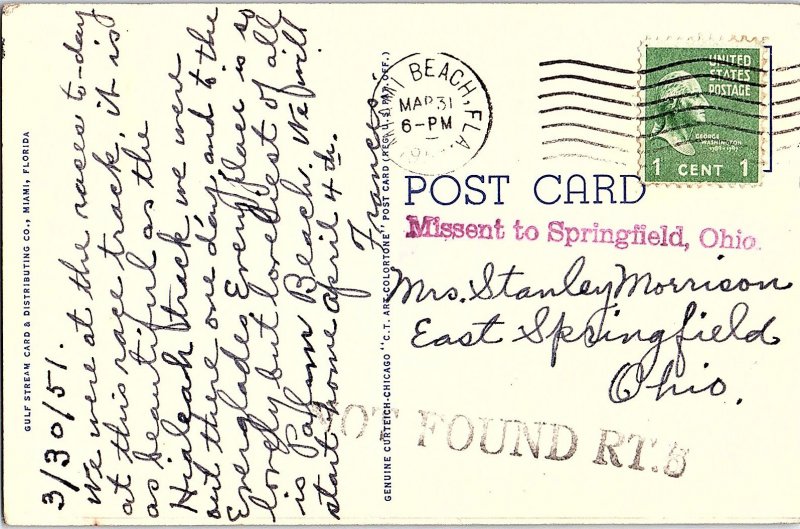 3/30/51.
We were at the races to-day
at this race track, it is
as beautiful as the
Hialeah track we were
out there one day and to the
Everglades. Every place is so
lovely but loveliest of all
is Palm Beach. We will
start home April 4th.
Francis.
GULF STREAM CARD & DISTRIBUTING CO., MIAMI, FLORIDA
GENUINE CURTEICH-CHICAGO "C.T. ART-COLORTONE" POST CARD (REG. U.S. PAT. OFF.)
MIAMI BEACH, FLA
MAR 31
6-PM
UNITED
STATES
POSTAGE
GEORGE
WASHINGTON
1789-1797
1 CENT 1
POST CARD
Missent to Springfield, Ohio.
Mrs. Stanley Morrison
East Springfield
Ohio.
NOT FOUND RT. 5